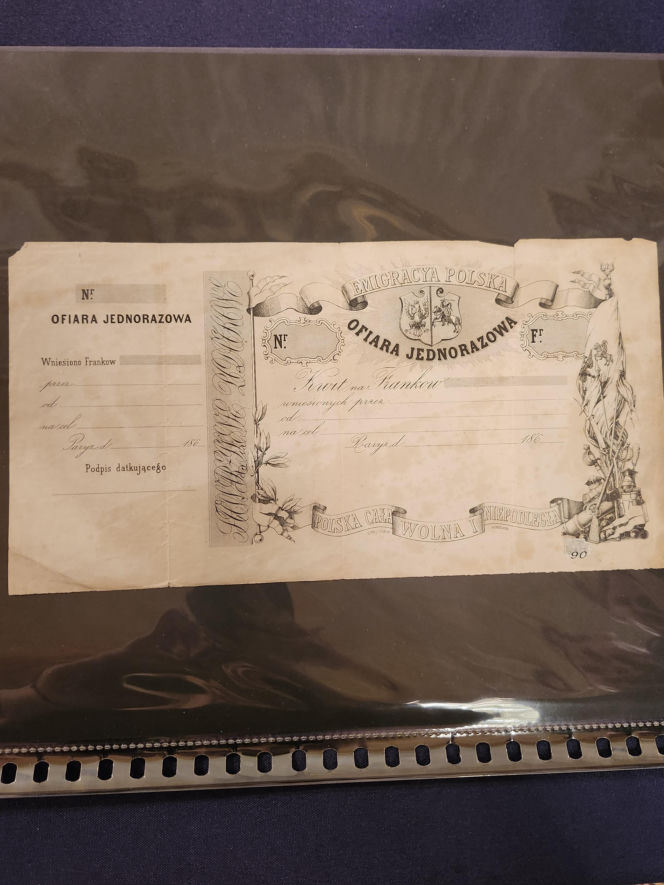 Nr
OFIARA JEDNORAZOWA
Wniesiono Franków
przez
od
na cel
Paryż d 186
Podpis datkującego
EMIGRACYA POLSKA
OFIARA JEDNORAZOWA
Nr
Fr
Kwit na Franków
wniesionych przez
od
na cel
Paryż d 186
POLSKA CAŁA WOLNA I NIEPODLEGŁA
90